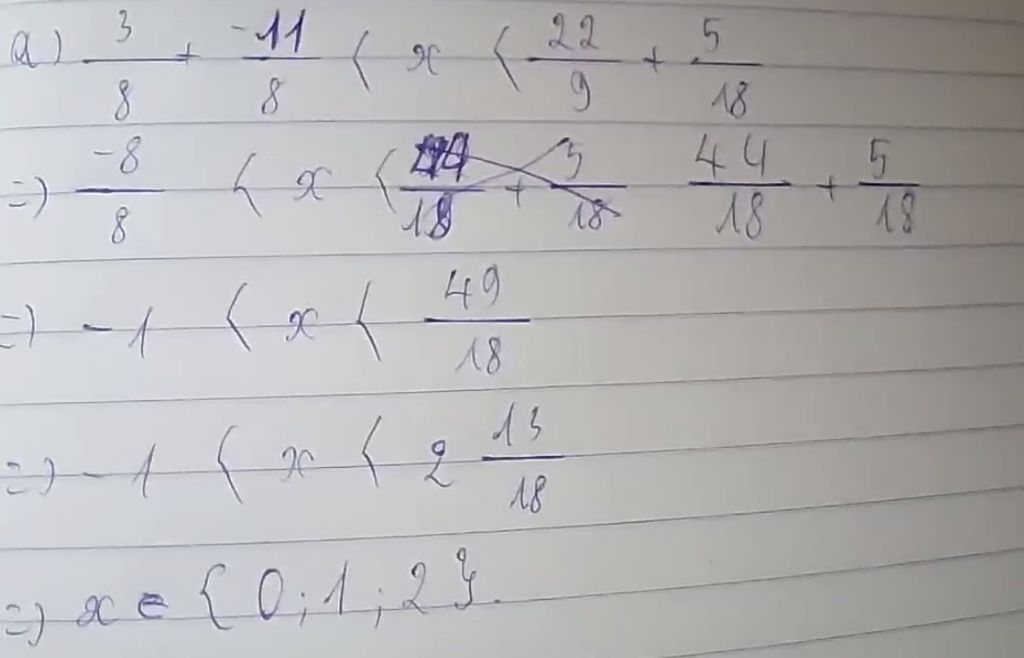 a) 3/8 + -11/8 < x < 22/9 + 5/18
=) -8/8 < x < 44/18 + 5/18 44/18 + 5/18
=) -1 < x < 49/18
=) -1 < x < 2 13/18
=) x ∈ { 0 ; 1 ; 2 }.